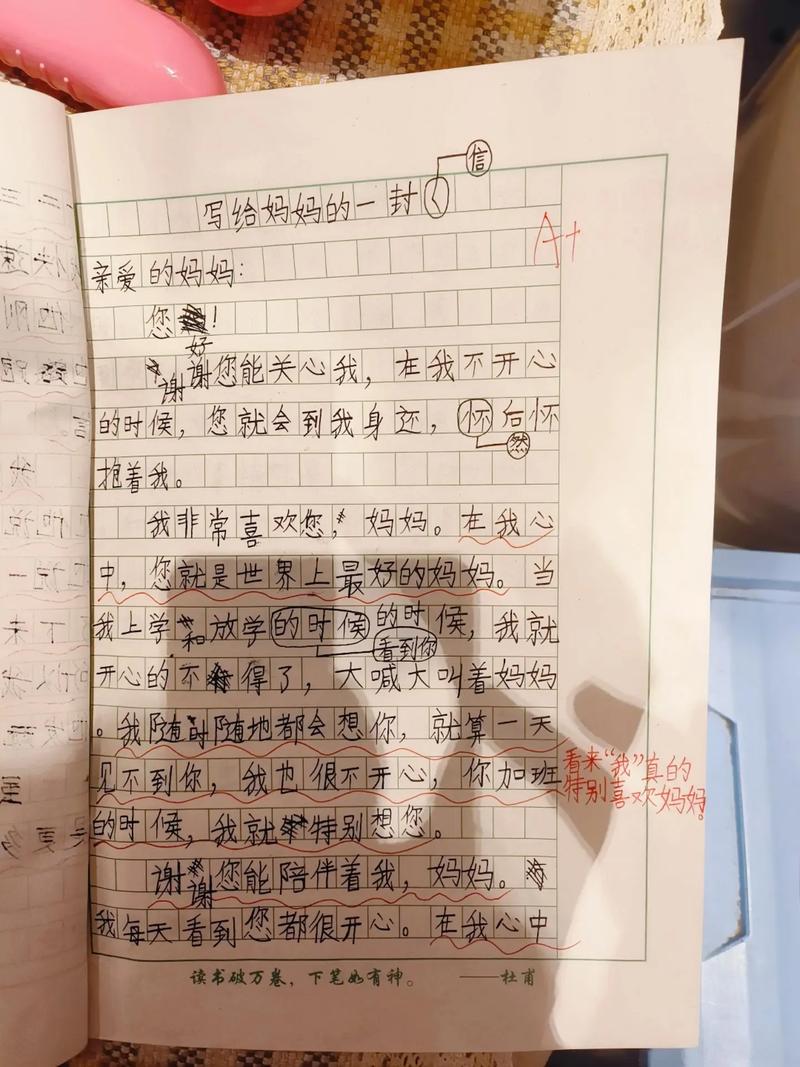 信
写给妈妈的一封
A+
亲爱的妈妈：
您！
好
谢谢您能关心我，在我不开心
的时候，您就会到我身还，怀后怀
然
抱着我。
我非常喜欢您，妈妈。在我心
中，您就是世界上最好的妈妈。当
我上学和放学的时候的时候，我就
看到你
开心的不得了，大喊大叫着妈妈
。我随时随地都会想你，就算一天
见不到你，我也很不开心，你加班
看来“我”真的
特别喜欢妈妈。
的时候，我就特别想您。
谢谢您能陪伴着我，妈妈。
我每天看到您都很开心。在我心中
读书破万卷，下笔如有神。 ——杜甫